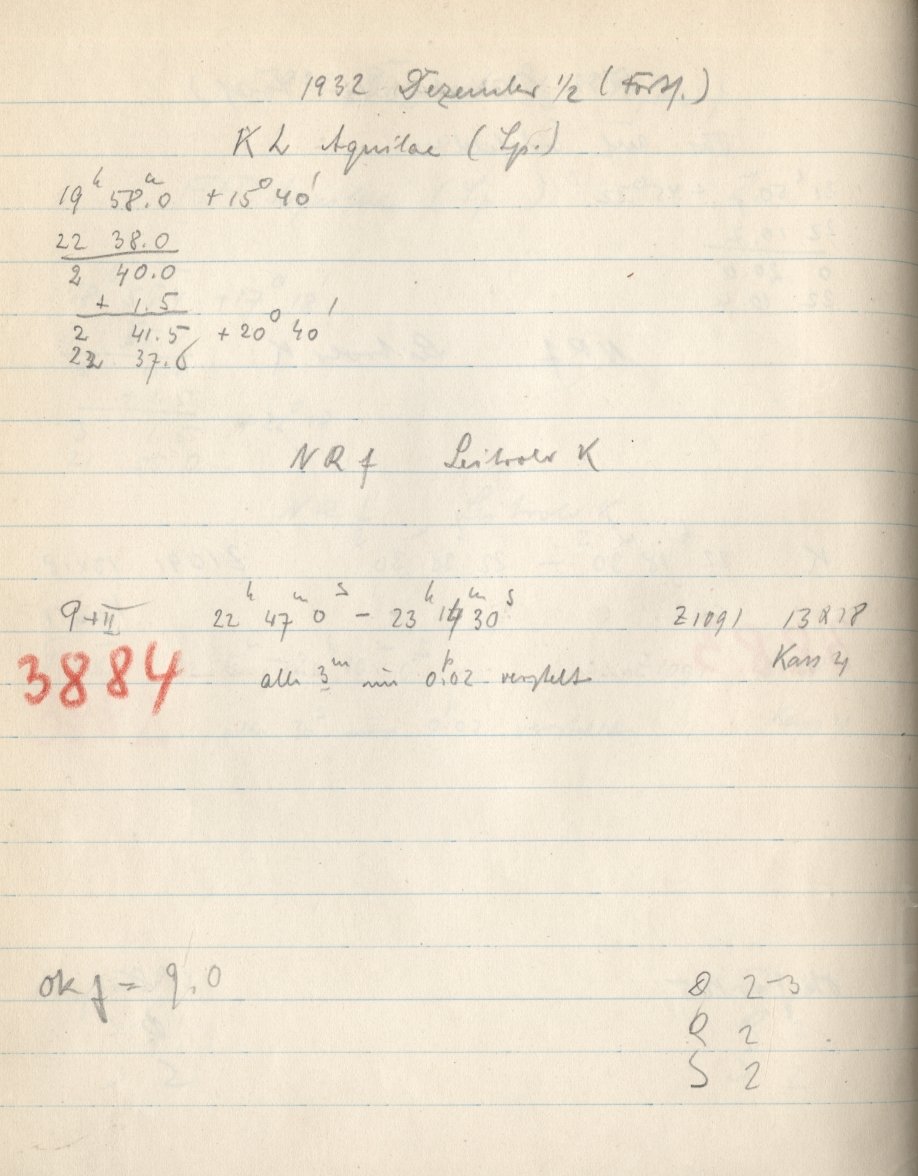 1932 Dezember 1/2 (Forts.)
KL Aquilae (Sp.)
19h 58m.0 +15° 40'
22 38.0
2 40.0
+ 1.5
2 41.5 +20° 40'
22 37.6
NRf Leitrohr K
9+II 22h 47m 0s – 23h 14m 30s Z1091 13x18
3884 alle 3m um 0p.02 verstellt Kass 4
ok f = 9.0
2-3
R 2
S 2